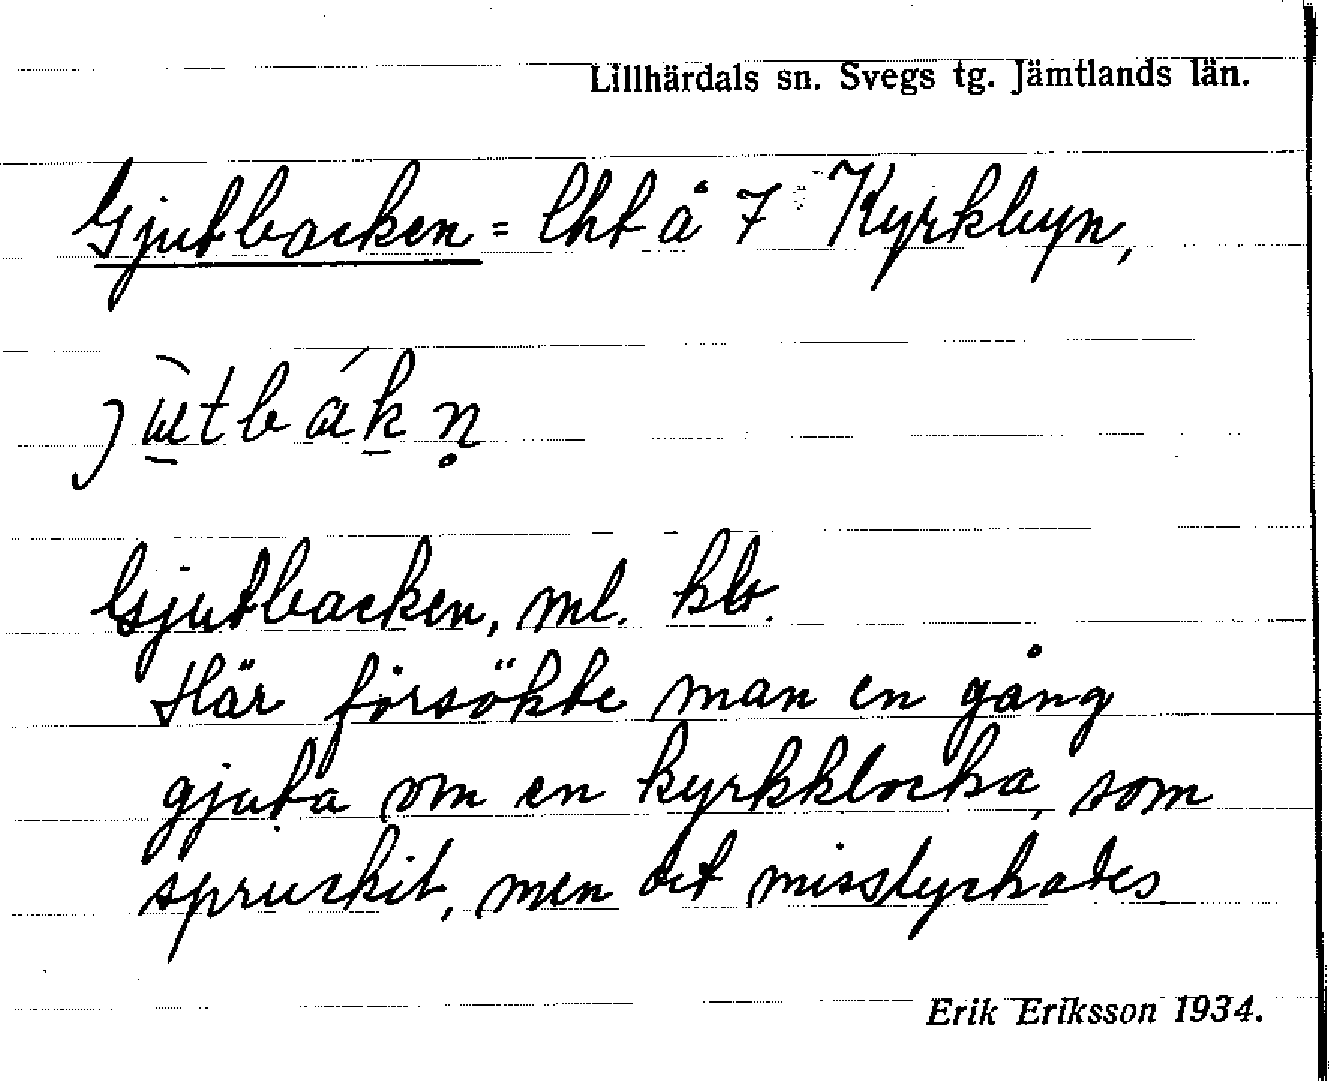 Lillhärdals sn. Svegs tg. Jämtlands län.
Gjutbacken = lht å 7 Kyrkbyn,
Gjutbacken, ml. kb.
Här försökte man en gång
gjuta om en kyrkklocka, som
spruckit, men det misslyckades
Erik Eriksson 1934.